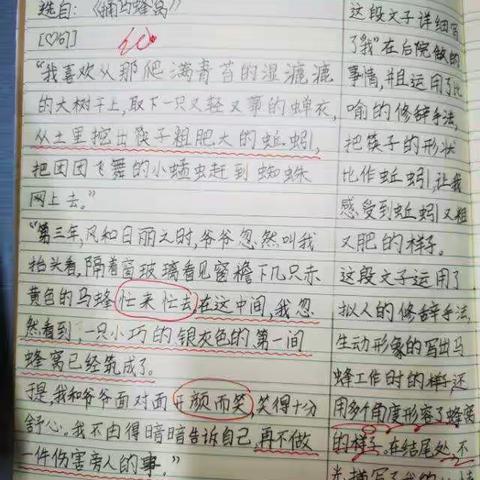 选自：《捅马蜂窝》
[♡句]
"我喜欢从那爬满青苔的湿漉漉
的大树干上，取下一只又轻又薄的蝉衣，
从土里挖出筷子粗肥大的蚯蚓，
把团团飞舞的小蠓虫赶到蜘蛛
网上去。"
"第三年，风和日丽之时，爷爷忽然叫我
抬头看，隔着窗玻璃看见窗檐下几只赤
黄色的马蜂忙来忙去，在这中间，我忽
然看到，一只小巧的银灰色的、第一间
蜂窝已经筑成了。
于是，我和爷爷面对面开颜而笑，笑得十分
舒心。我不由得暗暗告诉自己，再不做
一件伤害旁人的事。"
这段文子详细写
了"我"在后院做的
事情，并且运用了比
喻的修辞手法，
把筷子的形状
比作蚯蚓，让我
感受到蚯蚓又粗
又肥的样子。
这段文子运用了
拟人的修辞手法，
生动形象的写出马
蜂工作时的样子，还
用多个角度形容了蜂窝
的样子。在结尾处，不